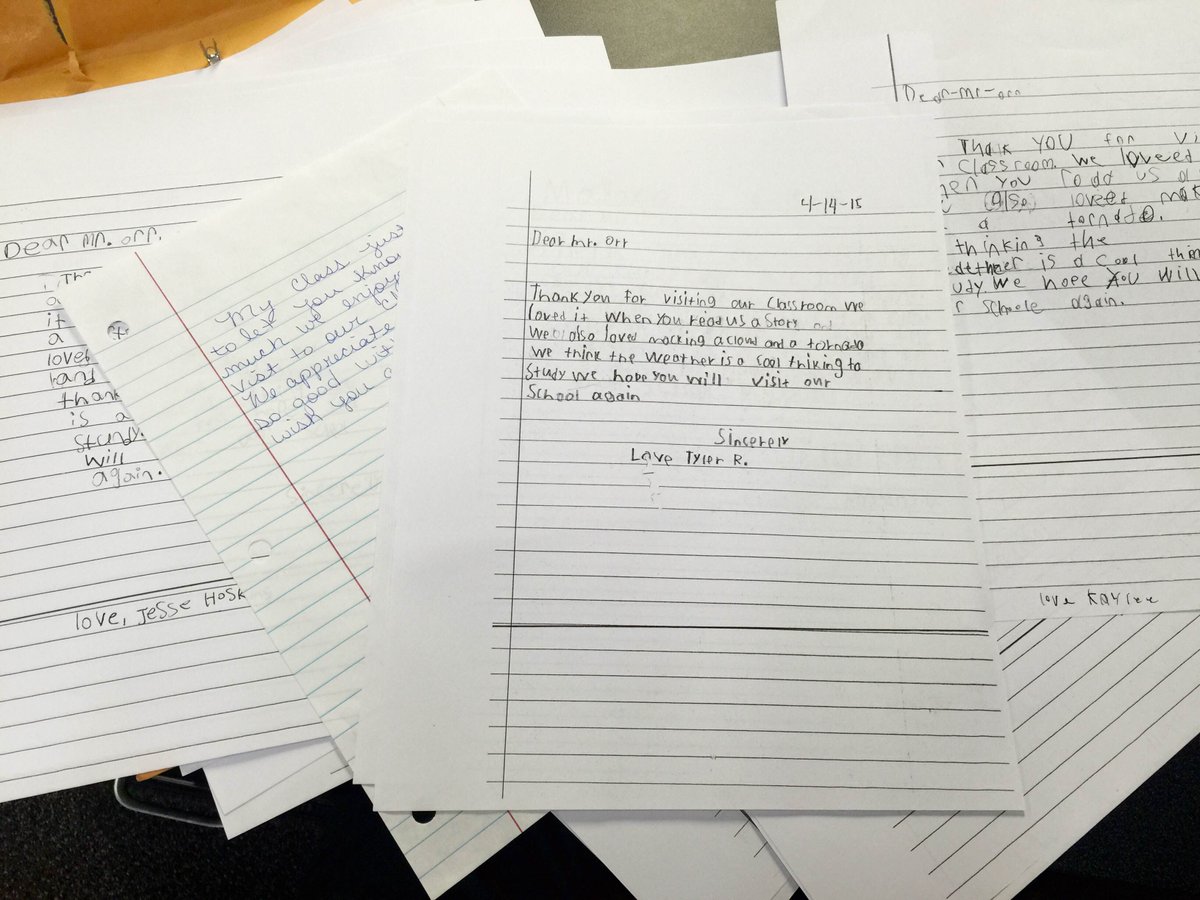 Dear mr. orr.
Tha
a
it
a
lovet
tany
thank
is a
study.
will
again.
love, Jesse Hosk
My class just
to let you know
much we enjoye
visit to our cl
We appreciate
so good wit
wish you a
4-14-15
Dear mr. orr
Thank you for visiting our classroom we
loved it when you read us a story
we also loved macking a cloud and a tornado
we think the weather is a cool thiking to
study we hope you will visit our
School again
Sincerely
Love Tyler R.
Dear-mr-orr
Thank YOU for vi
classroom. we loveed
en you to dd us a
also loveet mak
a tornado.
thinking the
is a cool thin
udy. we hope you will
r schoole again.
love KAYlee